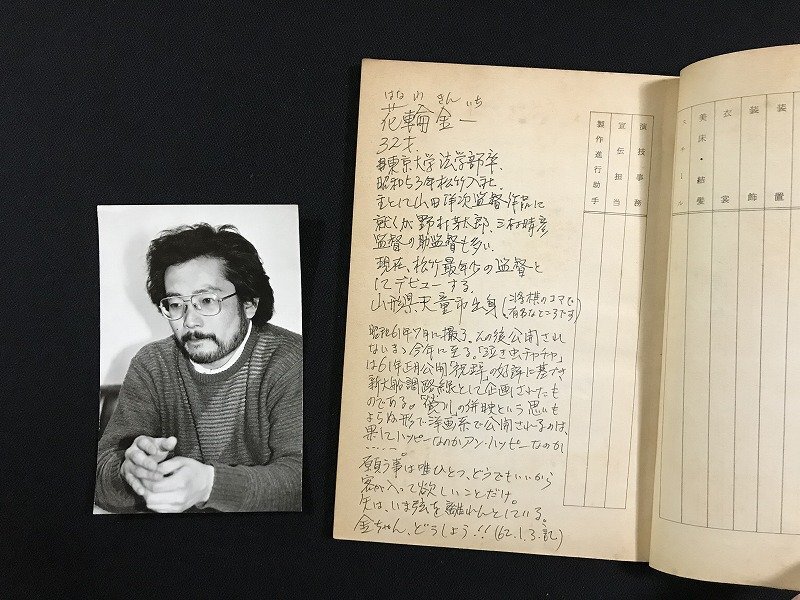 はな わ きん いち
花輪金一
32才.
東京大学法学部卒.
昭和53年松竹入社.
主として山田洋次監督作品に
就くが野村芳太郎、三村晴彦
監督の助監督も多い.
現在、松竹最年少の監督と
してデビューする.
山形県天童市出身(将棋のコマで
有名なところです)
昭和61年7月に撮了。その後公開され
ないまゝ今年に至る。「泣き虫チャチャ」
は61年正月公開「祝辞」の好評に基き
新大船調路線として企画されたも
のである。の併映という思いも
よらぬ形で洋画系で公開されるのは、
果してハッピーなのかアン・ハッピーなのか
……。
願う事は唯ひとつ、どうでもいいから
客が入って欲しいことだけ。
矢は、いま弦を離れんとしている。
金ちゃん、どうしよう!!(62.1.3.記)
演技事務
宣伝担当
製作進行助手
装置
装飾
衣裳
美床・結髪
スチール